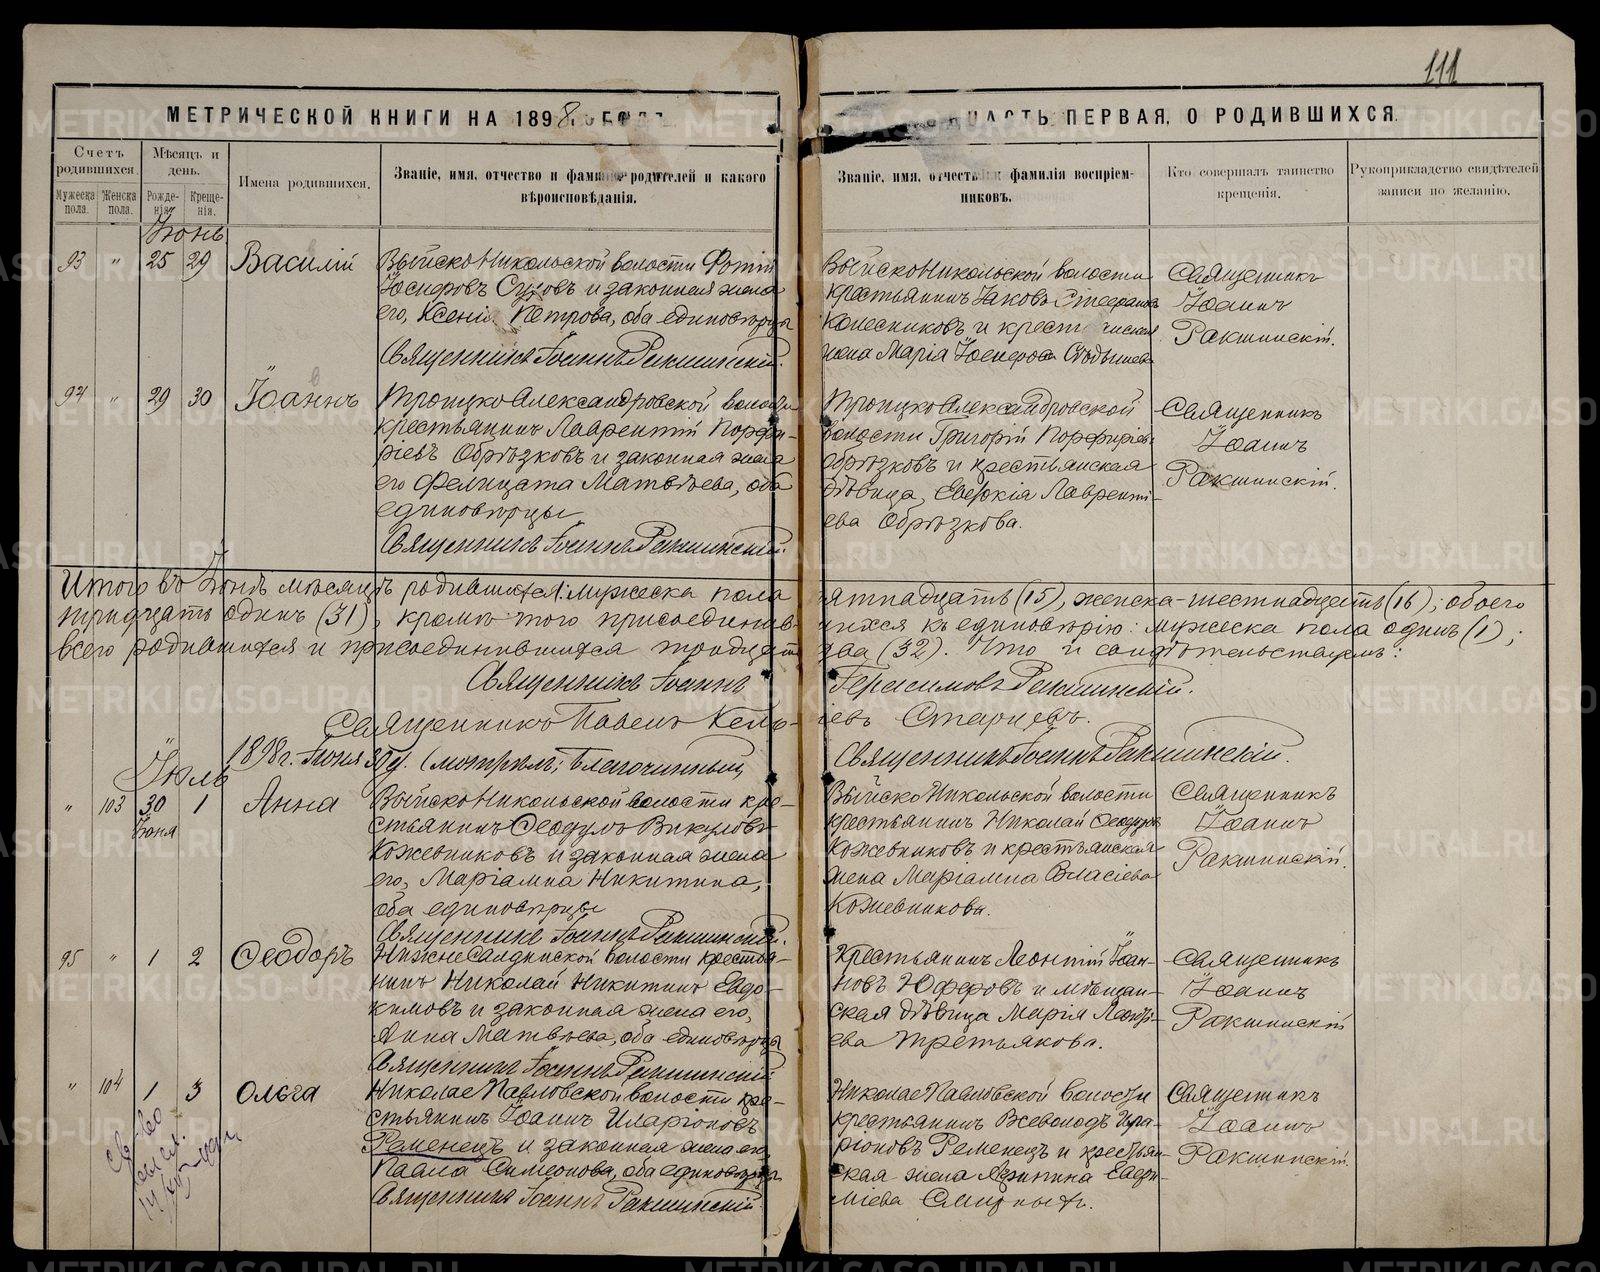 111
МЕТРИЧЕСКОЙ КНИГИ НА 1898
ЧАСТЬ ПЕРВАЯ, О РОДИВШИХСЯ.
Счетъ родившихся.
Мѣсяцъ и день.
Имена родившихся.
Званіе, имя, отчество и фамилія родителей и какого вѣроисповѣданія.
Званіе, имя, отчество и фамилія воспріемниковъ.
Кто совершалъ таинство крещенія.
Рукоприкладство свидѣтелей записи по желанію.
Мужеска пола.
Женска пола.
Рожденія.
Крещенія.
Іюнь
93 " 25 29 Василій
Выйско Никольской волости Фотій
Іосифовъ Суховъ и законная жена
его, Ксенія Петрова, оба единовѣрцы
Священникъ Іоаннъ Ракшинскій.
Выйско Никольской волости
крестьянинъ Іаковъ
Колесниковъ и
жена Марія Іосифова
Священникъ
Іоаннъ
Ракшинскій.
94 " 29 30 Іоаннъ
Троицко Александровской волости
крестьянинъ Лаврентій Порфи-
ріевъ Обрѣзковъ и законная жена
его Фелицата Матвѣева, оба
единовѣрцы
Священникъ Іоаннъ Ракшинскій.
Троицко Александровской
волости Григорій Порфиріевъ
Обрѣзковъ и крестьянская
дѣвица, Евдокія Лавренті-
ева Обрѣзкова.
Священникъ
Іоаннъ
Ракшинскій.
Итого въ Іюнѣ мѣсяцѣ родившихся: мужеска пола пятнадцать (15), женска - шестнадцать (16); обоего
тридцать одинъ (31), кромѣ того присоединившихся къ единовѣрію: мужеска пола одинъ (1);
всего родившихся и присоединившихся тридцать два (32). Что и свидѣтельствуемъ:
Священникъ Іоаннъ Герасимовъ Ракшинскій.
Священникъ Павелъ Старцевъ.
1898 г. Іюля Смотрѣлъ; Благочинный Священникъ Іоаннъ Ракшинскій.
Іюль
" 103 30 Іюня 1 Анна
Выйско Никольской волости кре-
стьянинъ Ѳеодулъ Викуловъ
Кожевниковъ и законная жена
его, Маріамна Никитина,
оба единовѣрцы
Священникъ Іоаннъ Ракшинскій.
Выйско Никольской волости
крестьянинъ Николай Ѳеодуловъ
Кожевниковъ и крестьянская
жена Маріамна Власіева
Кожевникова.
Священникъ
Іоаннъ
Ракшинскій.
95 " 1 2 Ѳеодоръ
Нижне Салдинской волости крестья-
нинъ Николай Никитинъ Евдо-
кимовъ и законная жена его,
Анна Матвѣева, оба единовѣрцы
Священникъ Іоаннъ Ракшинскій
Крестьянинъ Леонтій Іоан-
новъ Юферовъ и мѣщан-
ская дѣвица Марія Леонть-
ева Третьякова.
Священникъ
Іоаннъ
Ракшинскій
" 104 1 3 Ольга
Николае Павловской волости кре-
стьянинъ Іоаннъ Иларіоновъ
Ременецъ и законная жена его
Павла Симеонова, оба единовѣрцы
Священникъ Іоаннъ Ракшинскій.
Николае Павловской волости
крестьянинъ Всеволодъ Ила-
ріоновъ Ременецъ и крестьян-
ская жена Евфи-
міева
Священникъ
Іоаннъ
Ракшинскій.
METRIKI.GASO-URAL.RU